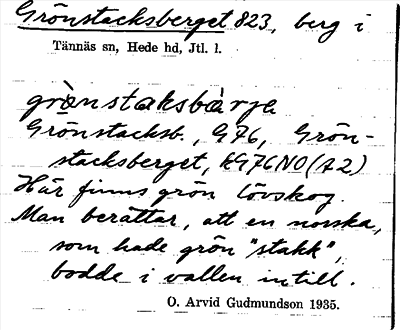 Grönstacksberget 823, berg i
Tännäs sn, Hede hd, Jtl. l.
grònstaksbàrje
Grönstacksb., G76, Grön-
stacksberget, kG76NO(A2)
Här finns grön lövskog.
Man berättar, att en norska,
som hade grön "stakk",
bodde i vallen intill.
O. Arvid Gudmundson 1935.